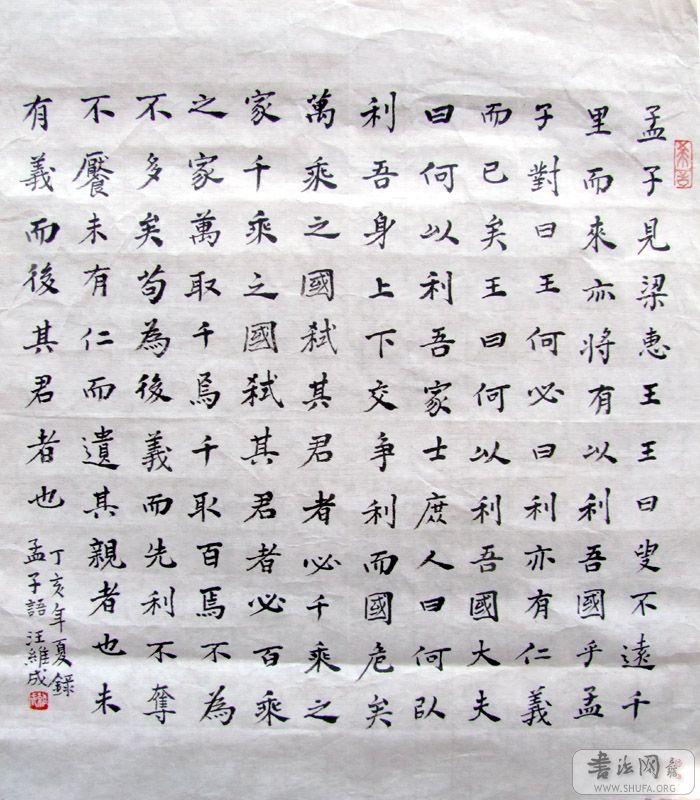 孟子見梁惠王王曰叟不遠千
里而來亦將有以利吾國乎孟
子對曰王何必曰利亦有仁義
而已矣王曰何以利吾國大夫
曰何以利吾家士庶人曰何以
利吾身上下交争利而國危矣
萬乘之國弒其君者必千乘之
家千乘之國弒其君者必百乘
之家萬取千焉千取百焉不為
不多矣苟為後義而先利不奪
不饜未有仁而遺其親者也未
有義而後其君者也
丁亥年夏錄
孟子語汪維成
书法网
WWW.SHUFA.ORG